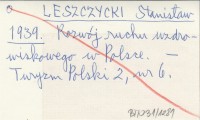 LESZCZYCKI Stanisław
1939. Rozwój ruchu uzdro-
wiskowego w Polsce. —
Turyzm Polski 2, nr 6.